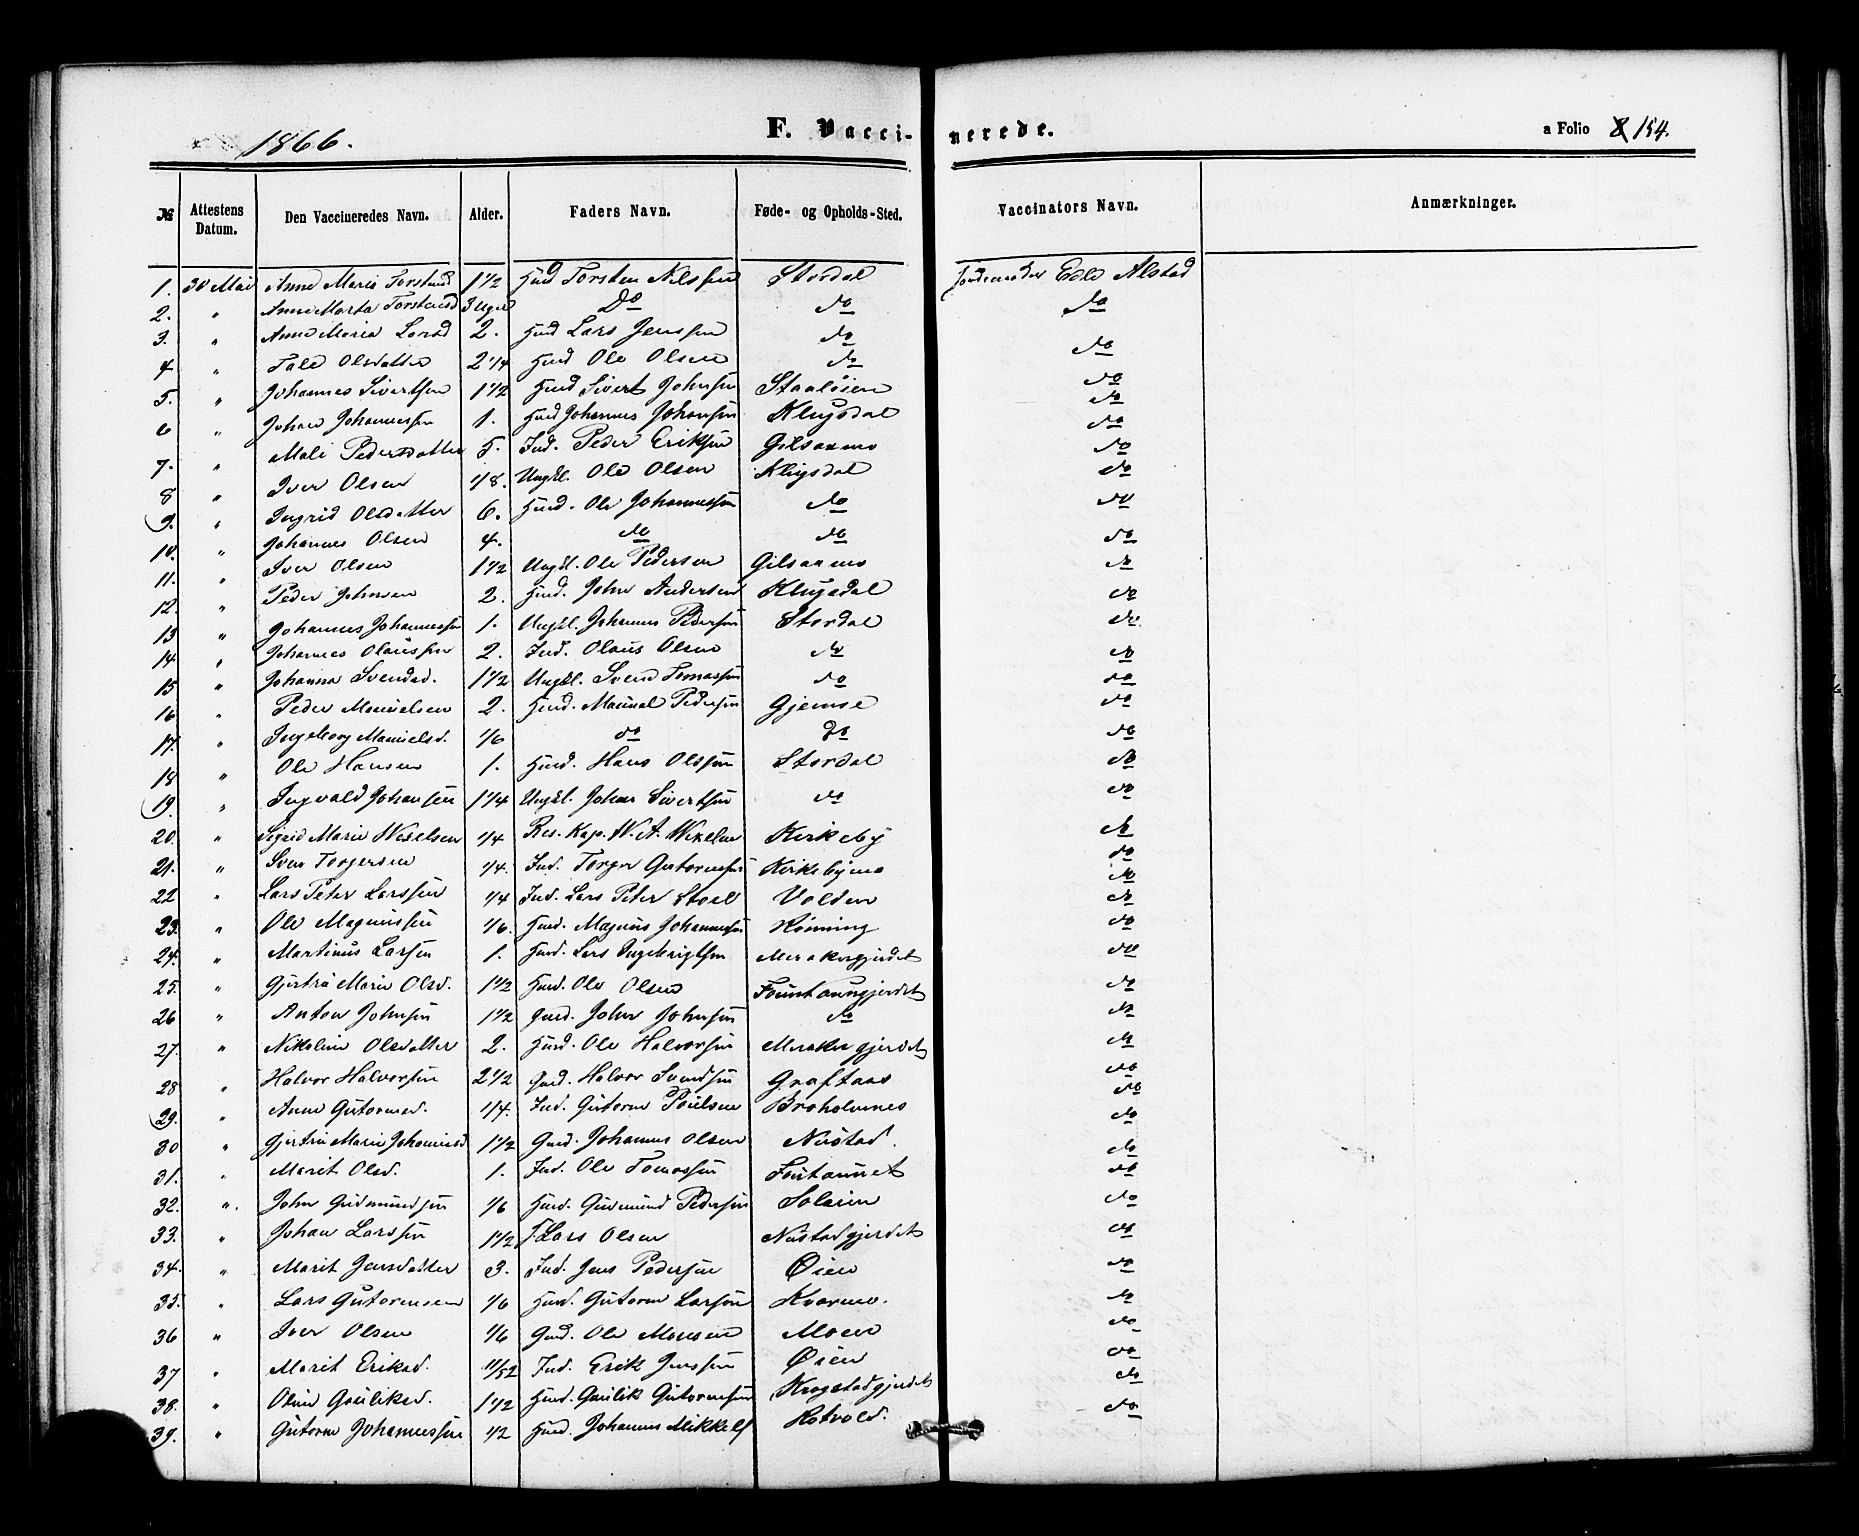 1866.
F. Vacci-nerede.
a Folio 154.
№ Attestens Datum. Den Vaccineredes Navn. Alder. Faders Navn. Føde- og Opholds-Sted. Vaccinators Navn. Anmærkninger.
1. 30 Mai Anne Marie Torstensd 1 1/2 Husd Torsten Nilssen Stordal Jordemoder Alstad
2. " Anne Marta Torstensd 3 Uger Do do do
3. " Anne Maria Larsd 2. Husd Lars Jenssen do do
4 " Olsdatter 2 1/4 Husd Ole Olsen do do
5. " Johannes Sivertsen 1 1/2 Husd Sivert Johnsen Staaløien do
6 " Johan Johannessen 1. Husd Johannes Johansen Klugsdal do
7. " Mali Pedersdatter 5. Ind. Peder Eriksen Gilsaamo do
8 " Iver Olsen 1/8. Ungkl. Ole Olsen Klugsdal do
9. " Ingrid Olsdatter 6. Husd. Ole Johannessen do do
10. " Johannes Olsen 4. do do do
11. " Iver Olsen 1 1/2 Ungkl. Ole Pedersen Gilsaamo do
12. " Peder Johnsen 2. Husd. John Andersen Klugsdal do
13 " Johannes Johannessen 1. Ungkl. Johannes Pedersen Stordal do
14. " Johannes Olaussen 2. Ind. Olaus Olsen do do
15 " Johanna Svendsd. 1 1/2 Ungkl. Svend Tomassen do do
16 " Peder Manuelsen 2. Husd. Manuel Pedersen Gjemse do
17. " Ingeborg Manuelsd. 1/6 do do do
18 " Ole Hansen 1. Husd. Hans Olssen Stordal do
19. " Ingvald Johansen 1 1/4 Ungkl. Johan Sivertsen do do
20. " Sigrid Marie Wexelsen 1/4 Res. Kap. W. A. Wexelsen Kirkeby do
21. " Sven Torgersen 1/4. Ind. Torger Gutormsen Kirkebymo do
22 " Lars Peter Larssen 1/4 Ind. Lars Peter Volden do
23. " Ole Magnussen 1/6. Husd. Magnus Johannesen Rønning do
24. " Martinus Larsen 1. Husd. Lars Ingebrigtsen Merakergjerdet do
25. " Gjertru Marie Olsd. 1 1/2 Husd. Ole Olsen Fountaungjerdet do
26 " Anton Johnsen 1 1/2 Gaard. John Johnsen do do
27. " Nikoline Olsdatter 2. Husd. Ole Halvorsen Merakergjerdet do
28 " Halvor Halvorsen 2 1/2 Gaard. Halvor Svendsen Graftaas do
29. " Anne Gutormsd. 1/4. Ind. Gutorm Poulsen Broholmnes do
30 " Gjertru Marie Johannesd 1 1/2 Gaard. Johannes Olsen Nustad. do
31. " Marit Olsd. 1. Ind. Ole Tomassen Funtaunet do
32. " John Gudmundsen 1/6 Husd. Gudmund Pedersen Soleim do
33. " Johan Larssen 1 1/2 Lars Olsen Nustadgjerdet do
34. " Marit Jensdatter 3. Ind. Jens Pedersen Øien do
35. " Lars Gutormsen 1/6 Husd. Gutorm Larsen Kvarmo. do
36 " Iver Olsen 1/6 Gaard. Ole Monsen Moen do
37 " Marit Eriksd. 11/52 Ind. Erik Jenssen Øien do
38. " Oline Gauliksd. 1 1/2 Husd. Gaulik Gutormsen Krogstadgjerdet do
39. " Gutorm Johannessen 1/2 Husd. Johannes Mikkels Kotvold. do